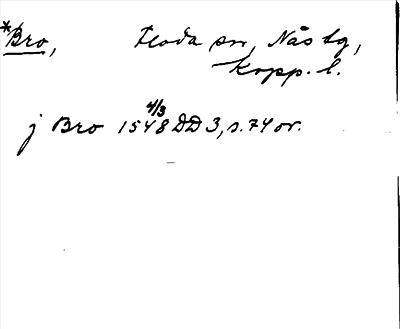 *Bro, Floda sn, Nås tg,
Kopp. l.
j Bro 1548 4/3 DD 3, s. 74 or.